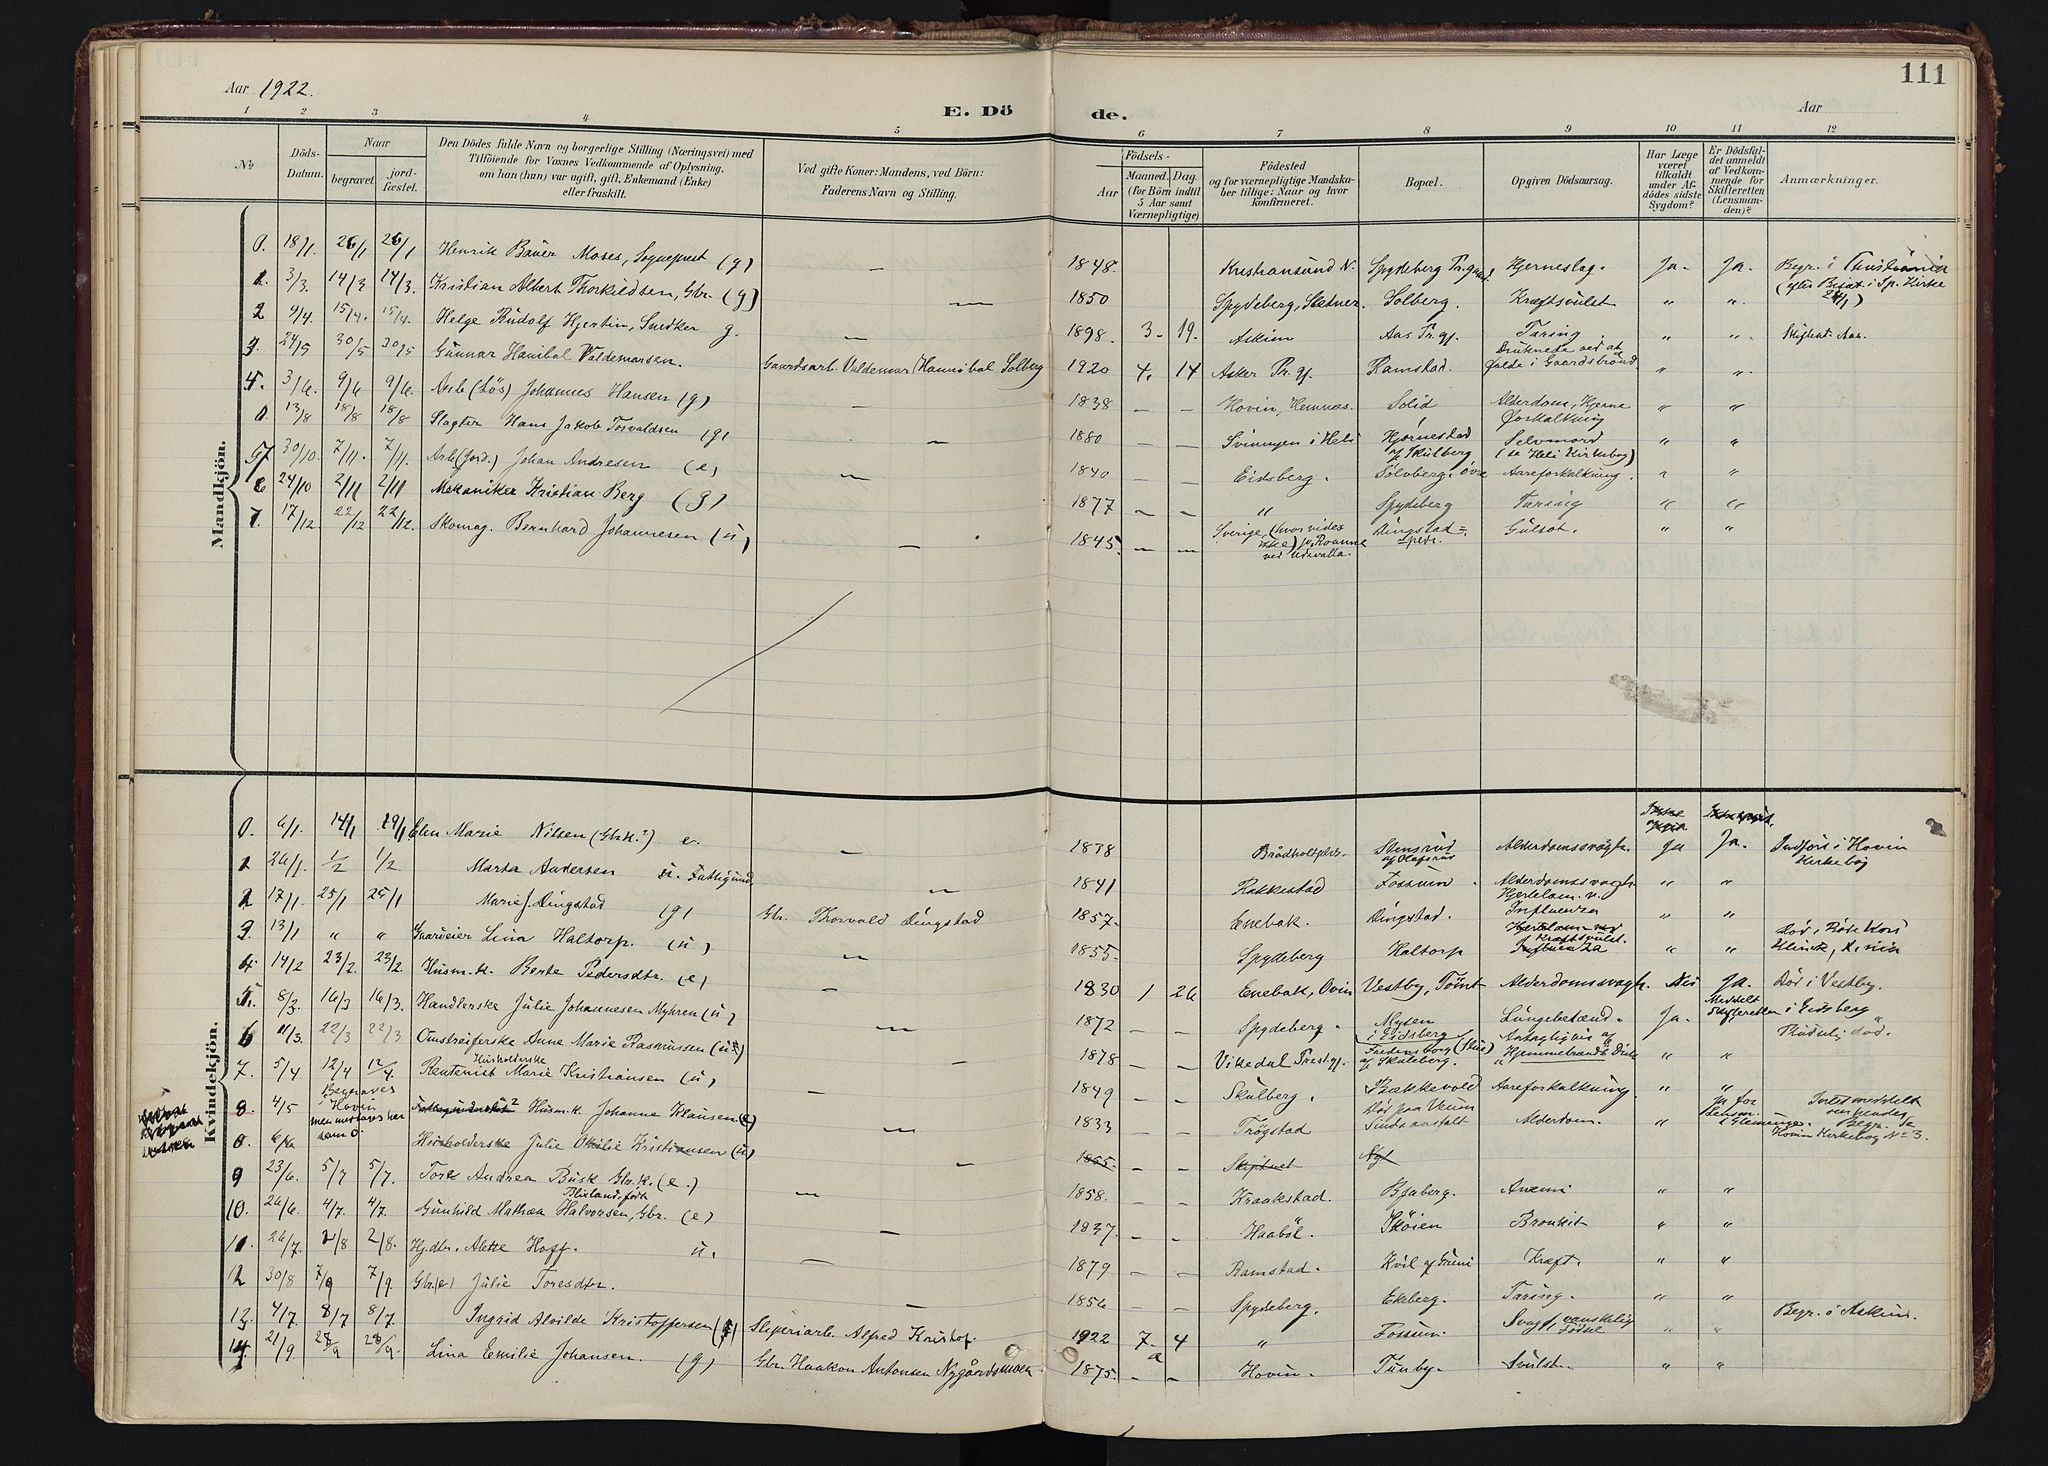 111
Aar 1922.
E. Döde.
Aar
1 2 3 4 5 6 7 8 9 10 11 12
No
Döds-Datum.
Naar
begravet.
jord-fæstet.
Den Dödes fulde Navn og borgerlige Stilling (Næringsvei) med
Tilföiende for Voxnes Vedkommende af Oplysning,
om han (hun) var ugift, gift, Enkemand (Enke)
eller fraskilt.
Ved gifte Koner: Mandens, ved Börn:
Faderens Navn og Stilling.
Födsels-
Aar
Maaned.
Dag
(for Börn indtil
5 Aar samt
Værnepligtige)
Födested
og for værnepligtige Mandska-
ber tillige: Naar og hvor
konfirmeret.
Bopæl.
Opgiven Dödsaarsag.
Har Læge
været
tilkaldt
under Af-
dödes sidste
Sygdom?
Er Dödsfal-
det anmeldt
af Vedkom-
mende for
Skifteretten
(Lensman-
den)?
Anmærkninger.
Mandkjön.
0. 18/1 26/1 26/1 Henrik Bauer Moses, Sogneprest (g) — 1848. Kristiansund N. Spydeberg Pr.gaard Hjerneslag. Ja. Ja. Begr. i Christiania
(efter Bisæt. i Sp. Kirke
1. 3/3. 14/3 14/3. Kristian Albert Thorkildsen, Gbr. (g) — 1850 Spydeberg, Solberg. Kræftsvulst " "
2 9/4. 15/4. 15/4. Helge Rudolf Hjertin, Snedker g. — 1898. 3. 19. Askim Aas Pr.gj. Tæring " "
3. 24/5 30/5 30/5 Gunnar Hanibal Valdemarsen. Gaardsarb. Valdemar Hannibal Solberg 1920 4. 14 Asker Pr.gj. Ramstad. Druknede ved at
falde i Gaardsbrönd " "
4. 3/6. 9/6 9/6. Arb. (Lös) Johannes Hansen (g) — 1838 — — Hovin, Hemnæs. Solid Alderdom, Hjerne
forkalkning " "
0. 13/8 18/8 18/8 Slagter Hans Jakob Torvaldsen (g) — 1880 — — Sviningen i Heli Hjörnestad
af Skulberg Selvmord
(se Heli Kirkebog) " "
5. 30/10. 7/11. 7/11. Arb. (Jord.) Johan Andresen (e) — 1840 — — Eidsberg. Sölvberg, övre Aareforkalkning. " "
6 24/10 2/11 2/11 Mekaniker Kristian Berg (g) 1877 — — " Spydeberg Tæring " "
7. 17/12 22/12 22/12. Skomag. Bernhard Johannesen (u) — 1845. — — Sverige, (hvor vides
ikke)
ved Udevalla. Dingstad Gulsot. " "
Kvindekjön.
0. 6/1. 14/1 19/1 Elen Marie Nilsen (Gbrk.?) e. — 1838 Brödholtplds. Stensrud
af Olafsrud Alderdomssvagh. Ja Ja. Indfört i Hovin
Kirkebog
1 26/1. 1/2 1/2 Marta Andersen u. Fattigund. — 1841 Rakkestad Fossum. Alderdomssvagh. " "
2 17/1. 25/1 25/1 Marie J. Dingstad (g) Gbr. Thorvald Dingstad 1857. Enebak. Dingstad. Hjertelam. v.
Influenza " "
3. 13/1 " " Lina Haltorp. (u) — 1855. Spydeberg Haltorp " " Död i Röde Kors
Klinik,
4 14/2 23/2. 23/2. Husm.k. Berte Pedersdtr. (e) — 1830 1 26 Enebak, Ovin Vestby, Tömt Alderdomssvagh. Nei Ja. Död i Vestby.
5. 8/3. 16/3 16/3. Handlerske Julie Johannesen Myhren (u) — 1872 — — Spydeberg. Mysen
i Eidsberg Lungebetænd. Ja. Meddelt
Skifteretten i Eidsberg
6 11/3. 22/3 22/3 Omstreiferske Anne Marie Rasmussen (u) 1878 — — Vikedal Prestgj. Fredensborg
af Skulberg. Antagligvis af " " Pludselig död.
7. 5/4 12/4 12/4 Husholderske
Rentenist Marie Kristiansen (u) — 1849 — — Skulberg. Bækkevold Aareforkalkning. " "
8. 4/5 Begraves
i Hovin
Husm.k. Johanne Klausen (e) — 1833 — — Trögstad Död paa Veum
Sindsasyl Alderdom. " Ja for
Hovin Kirkebog No 3.
0. Husholderske Julie Otilie Kristiansen (u) — 1855. — — Skiptvet
9 23/6. 5/7 5/7. Tore Andrea Busk Gbr.k. (e.) — 1858. — — Kraakstad. Bjaberg. Anæmi " "
10. 26/6. 4/7. 4/7. Blixland, födt
Gunhild Mathea Halvorsen, Gbr. (e) — 1837. — — Haaböl. Sköien Bronkit " "
11. 26/7. 2/8 2/8. Hj.dtr. Alette Hoff. u. — 1879 — — Ramstad. Kvil af Gruni Kræft. " "
12 30/8 7/9 7/9 Gbr. (e) Julie Toresdtr. — 1856 — — Spydeberg. Ekeberg. Tæring. " "
13. 4/7. 8/7 8/7. Ingrid Alvilde Kristoffersen Sliperiarb. Alfred Kristof. 1922 7. 4 " Fossum. Svagt, vanskelig
Födsel " " Begr. i Askim.
14. 21/9. 28/9 28/9. Lina Emilie Johansen. (g) Gbr. Haakon Antonsen Nygårdsmoen 1875. — — Hovin. Tunby. Svulst. " "